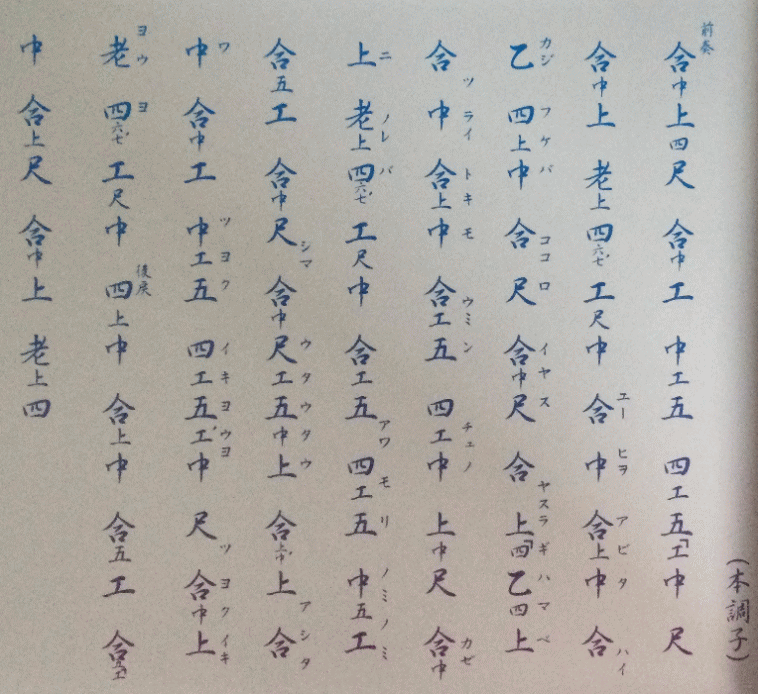 (本調子)
前奏
合中上四尺合中工中工五四工五「工中尺
合中上老上四六七工尺中合中合上中合
ユーヒヲアビタハイ
乙四上中合尺合中尺合上「四乙四上
カジフケバココロイヤスヤスラギハマベ
合中合上中合工五四工中上中尺合中
ツライトキモウミンチュノカゼ
上老上四六七工尺中合工五四工五中五工
ニノレバアワモリノミノミ
合五工合中尺合中尺工五中上合上合
シマウタウタウアシタ
中合中工中工五四工五工中尺合中上
ワツヨクイキヨウヨツヨクイキ
老四六七工尺中四上中合上中合五工合
ヨウヨ
後戻
中合上尺合中上老上四